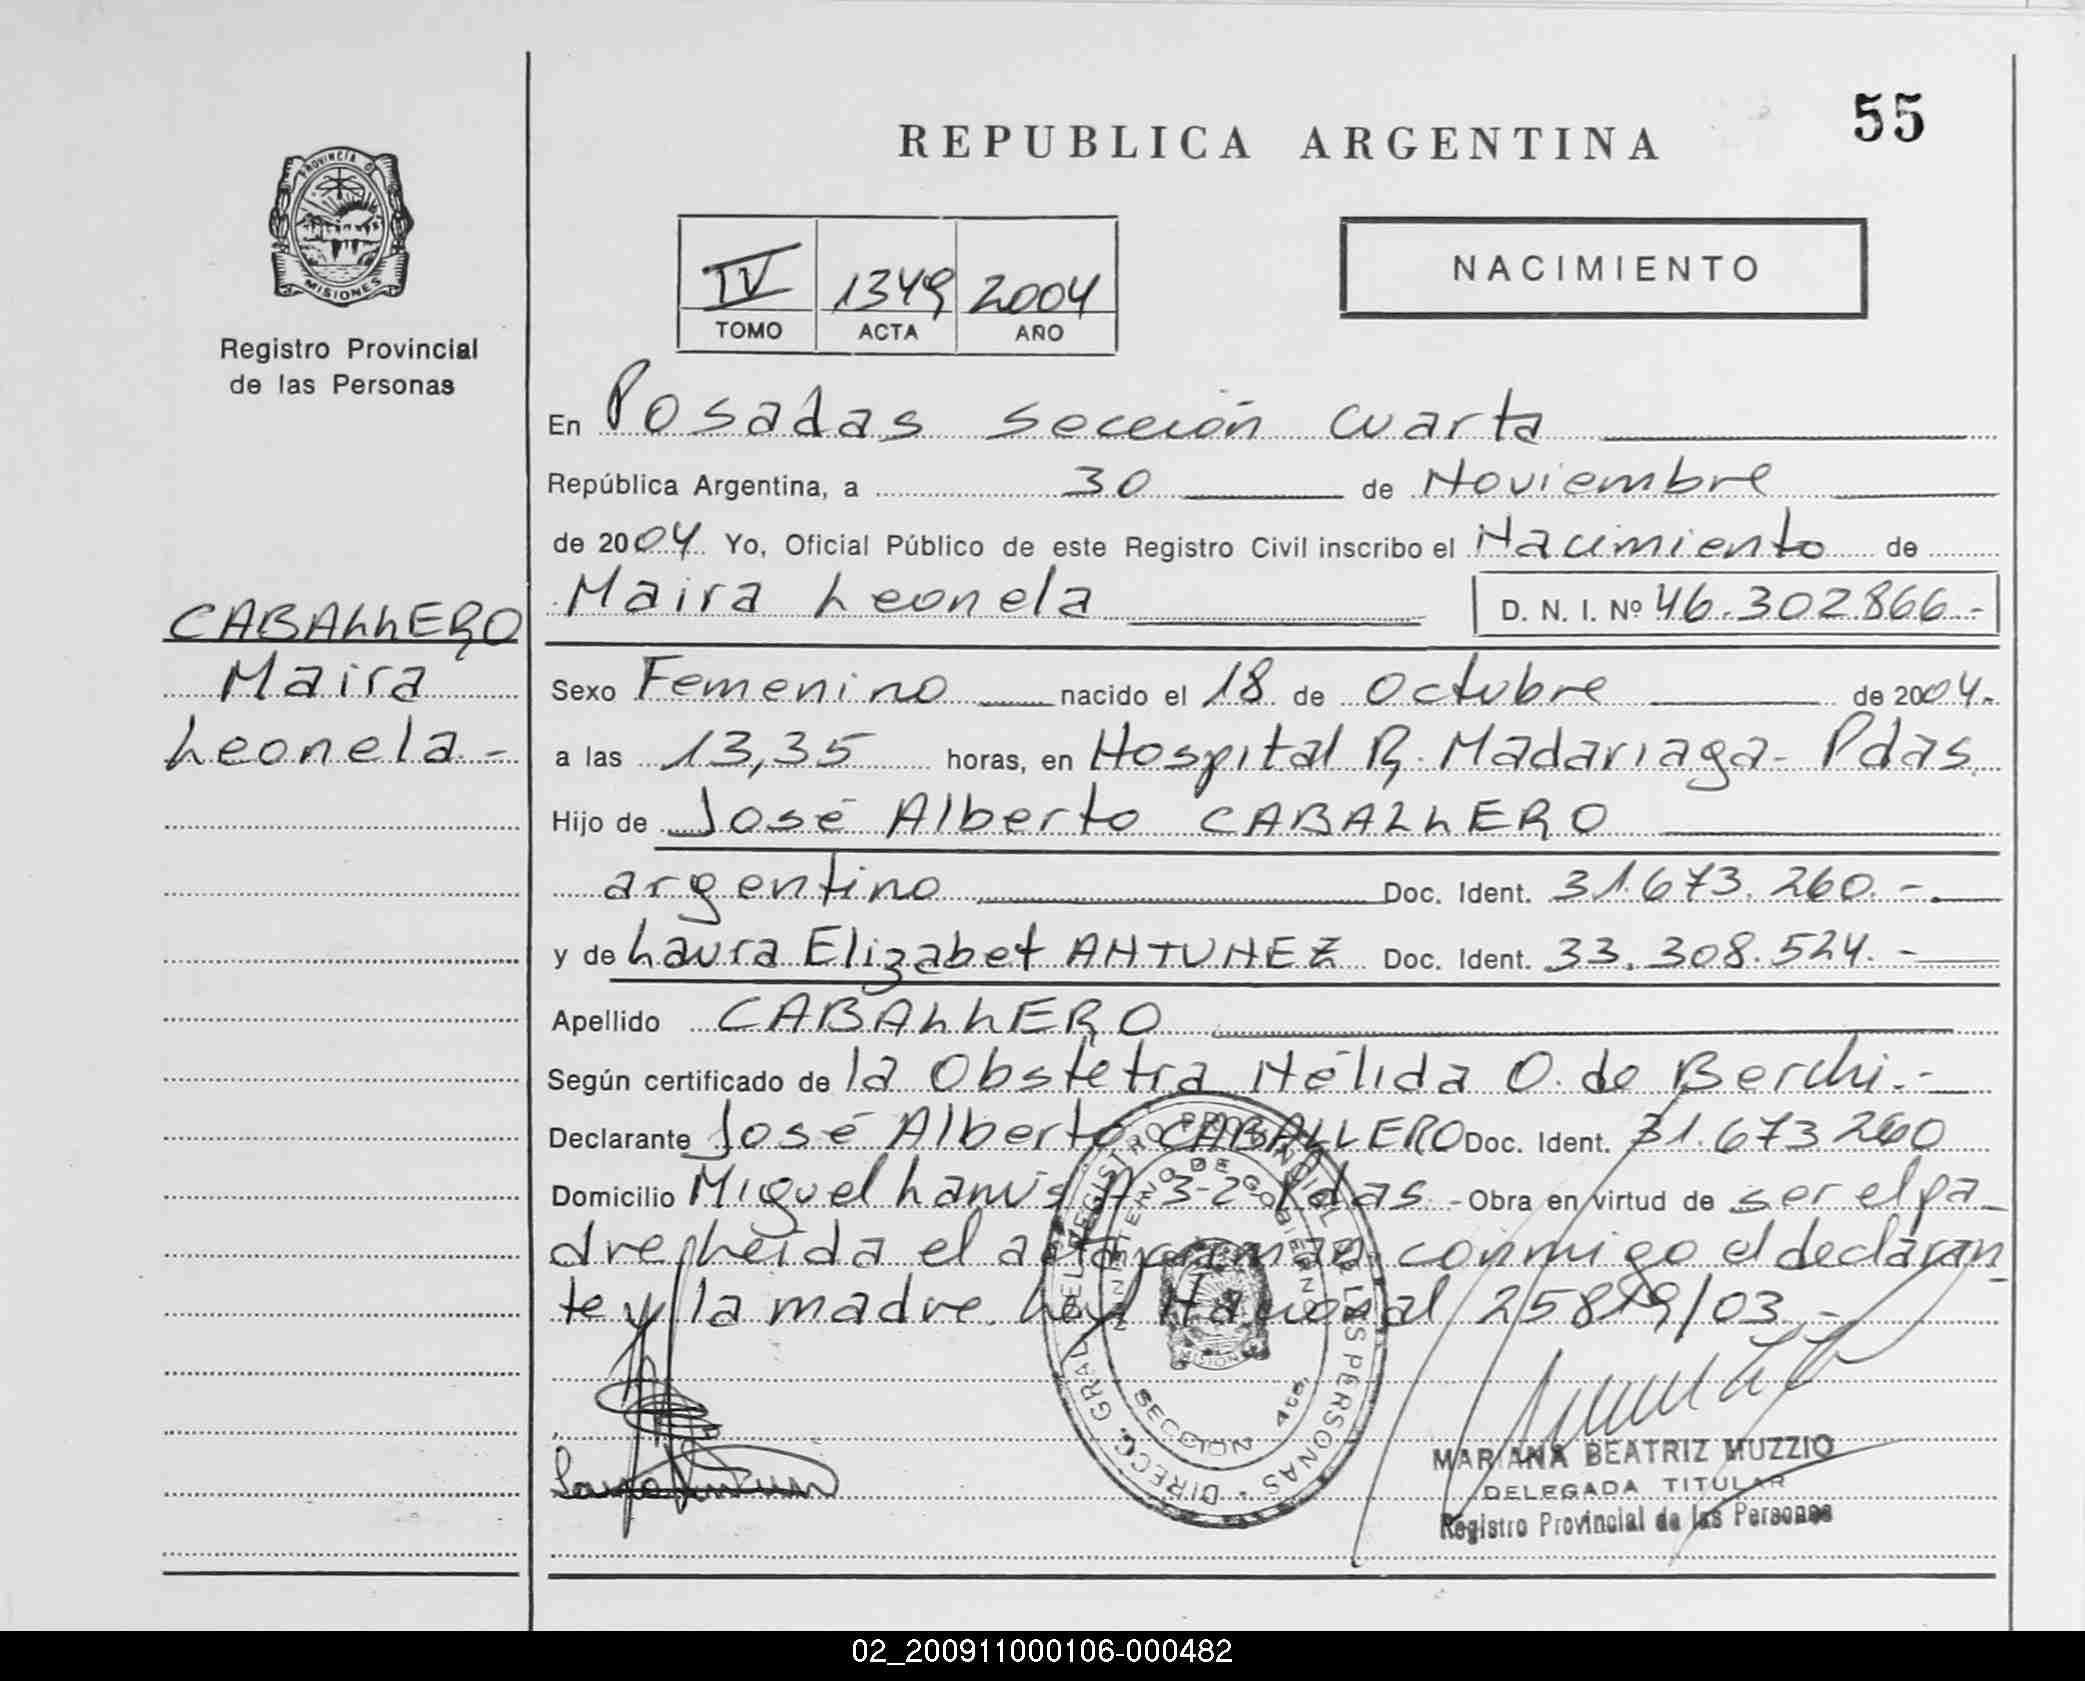 55
REPUBLICA ARGENTINA
PROVINCIA DE
MISIONES
Registro Provincial
de las Personas
NACIMIENTO
IV 1349 2004
TOMO ACTA AÑO
En Posadas sección cuarta
República Argentina, a 30 de Noviembre
de 2004 Yo, Oficial Público de este Registro Civil inscribo el Nacimiento de
Maira Leonela D. N. I. Nº 46.302.866.-
CABALLERO
Maira
Leonela.-
Sexo Femenino nacido el 18 de Octubre de 2004.-
a las 13,35 horas, en Hospital R. Madariaga - Pdas.
Hijo de José Alberto CABALLERO
argentino Doc. Ident. 31.673.260.-
y de Laura Elizabet ANTUNEZ Doc. Ident. 33.308.524.-
Apellido CABALLERO
Según certificado de la Obstetra Nélida O. de Berchi.-
Declarante José Alberto CABALLERO Doc. Ident. 31.673.260
Domicilio Miguel Lanús 3-2 Pdas.- Obra en virtud de ser el pa-
dre, leida el acta firman conmigo el declaran-
te y la madre. Ley Nacional 25819/03.-
DIRECC. GRAL. DEL REGISTRO PROVINCIAL DE LAS PERSONAS
MINISTERIO DE GOBIERNO
MISIONES
SECCION 4ta.
MARIANA BEATRIZ MUZZIO
DELEGADA TITULAR
Registro Provincial de las Personas
02_200911000106-000482